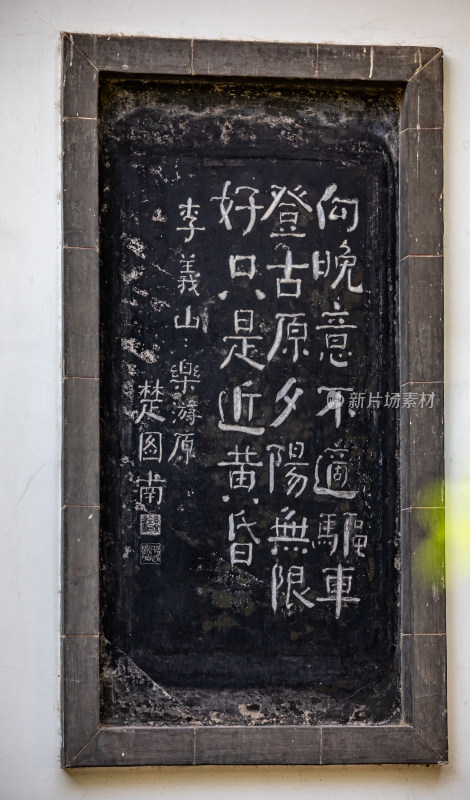 向晚意不適驅車
登古原夕陽無限
好只是近黄昏
李義山：樂游原
楚圖南
新片场素材